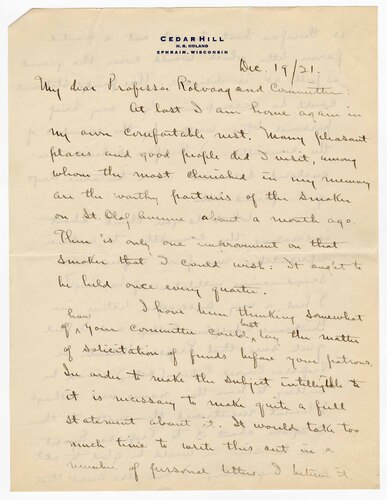 CEDAR HILL
H. R. HOLAND
EPHRAIM, WISCONSIN
Dec. 19/21.
My dear Professor Rolvaag and Committee:
At last I am home again in
my own comfortable nest. Many pleasant
places and good people did I visit, among
whom the most cherished in my memory
are the worthy partners of the smoker
on St. Olaf Avenue about a month ago.
There is only one improvement on that
smoker that I could wish: It ought to
be held once every quarter.
I have been thinking somewhat
of how your committee could best lay the matter
of solicitation of funds before your patrons.
In order to make the subject intelligible to
it is necessary to make quite a full
statement about it. It would take too
much time to write this out in a
number of personal letters. I believe it